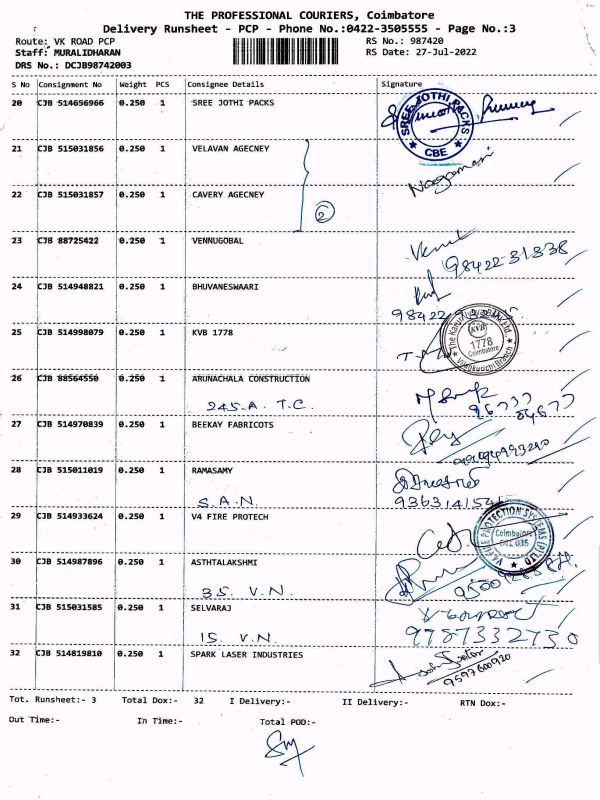 THE PROFESSIONAL COURIERS, Coimbatore
Delivery Runsheet - PCP - Phone No.:0422-3505555 - Page No.:3
Route: VK ROAD PCP RS No.: 987420
Staff: MURALIDHARAN RS Date: 27-Jul-2022
DRS No.: DCJB98742003
S No Consignment No Weight PCS Consignee Details Signature
20 CJB 514656966 0.250 1 SREE JOTHI PACKS
SREE JOTHI PACKS
CBE
21 CJB 515031856 0.250 1 VELAVAN AGECNEY
Nagamani
22 CJB 515031857 0.250 1 CAVERY AGECNEY
2
23 CJB 88725422 0.250 1 VENNUGOBAL
98422-31838
24 CJB 514948821 0.250 1 BHUVANESWAARI
98422
25 CJB 514998079 0.250 1 KVB 1778
KVB
1778
Coimbatore
26 CJB 88564550 0.250 1 ARUNACHALA CONSTRUCTION
245.A. T.C.
27 CJB 514970839 0.250 1 BEEKAY FABRICOTS
28 CJB 515011019 0.250 1 RAMASAMY
S.A.N.
29 CJB 514933624 0.250 1 V4 FIRE PROTECH
Coimbatore
30 CJB 514987896 0.250 1 ASTHTALAKSHMI
35. V.N.
31 CJB 515031585 0.250 1 SELVARAJ
15. V.N.
9787332730
32 CJB 514819810 0.250 1 SPARK LASER INDUSTRIES
9597600920
Tot. Runsheet:- 3 Total Dox:- 32 I Delivery:- II Delivery:- RTN Dox:-
Out Time:- In Time:- Total POD:-